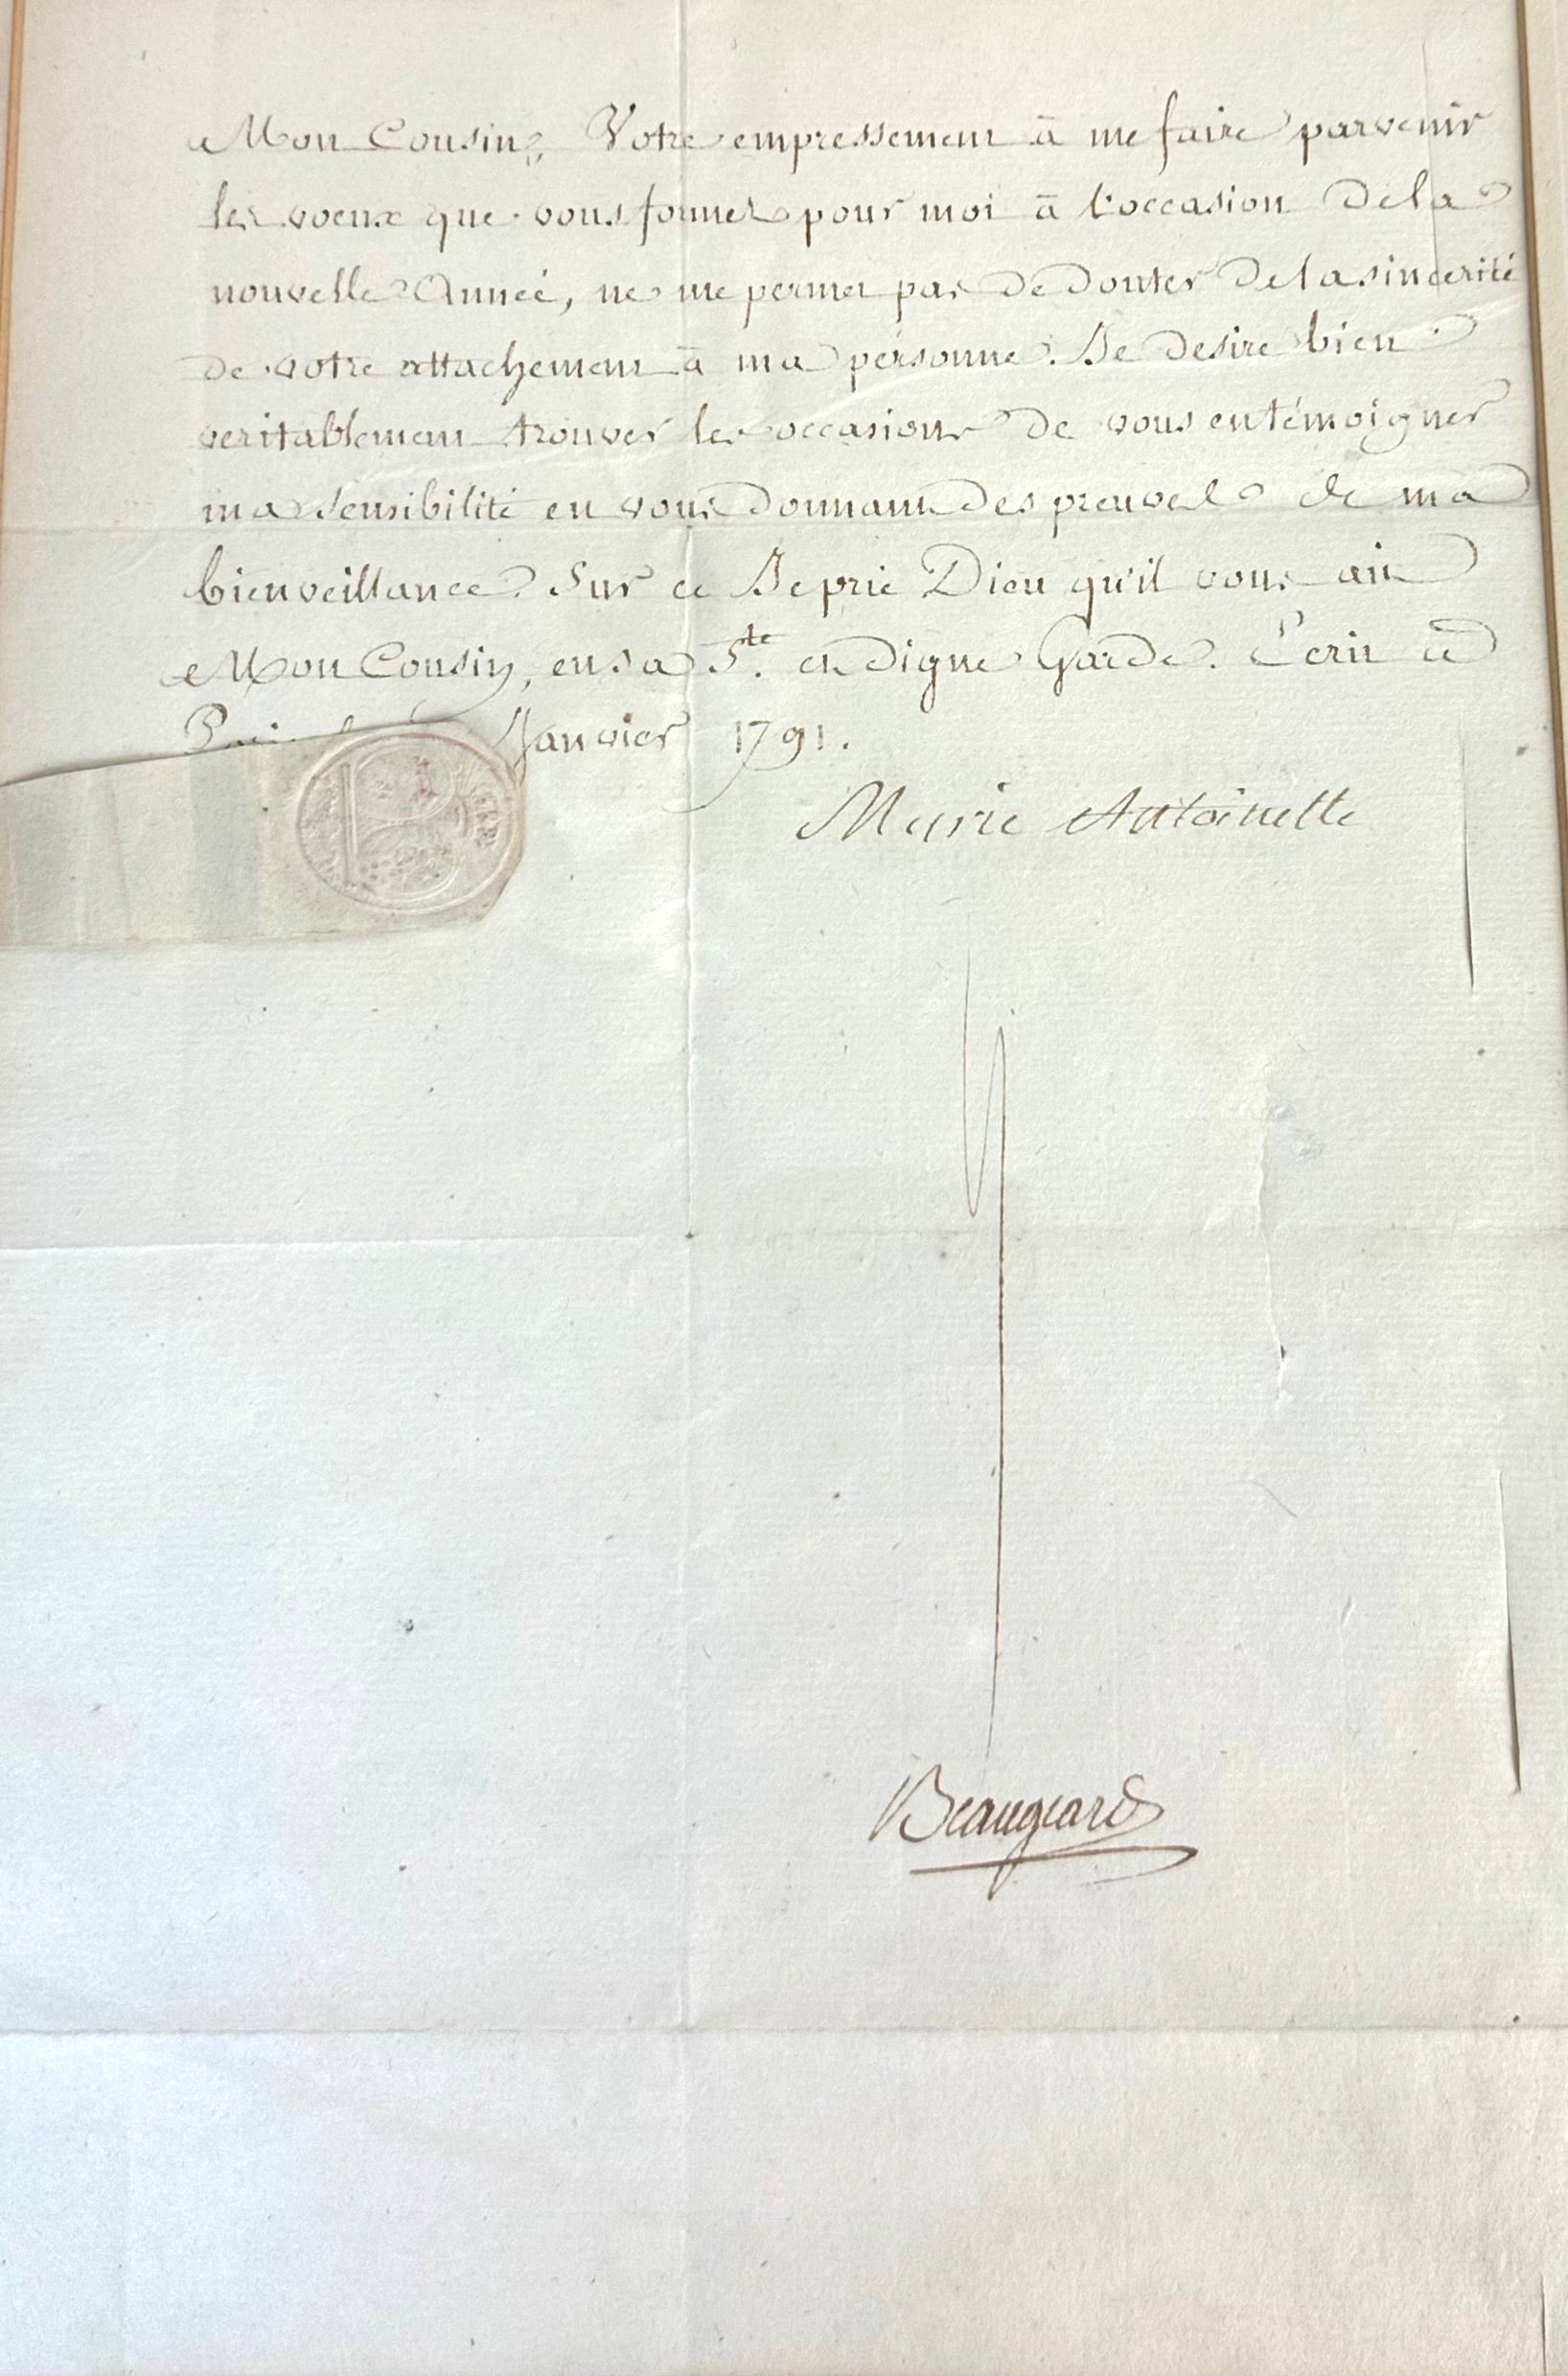 Mon Cousin, Votre empressement à me faire parvenir
les voeux que vous formez pour moi à l'occasion de la
nouvelle Année, ne me permet pas de douter de la sincerité
de votre attachement à ma personne. Je desire bien
veritablement trouver les occasions de vous en témoigner
ma sensibilité en vous donnant des preuves de ma
bienveillance. Sur ce Je prie Dieu qu'il vous ait
Mon Cousin, en sa Ste. et digne Garde. Ecrit à
Janvier 1791.
Marie Antoinette
Beaugeard